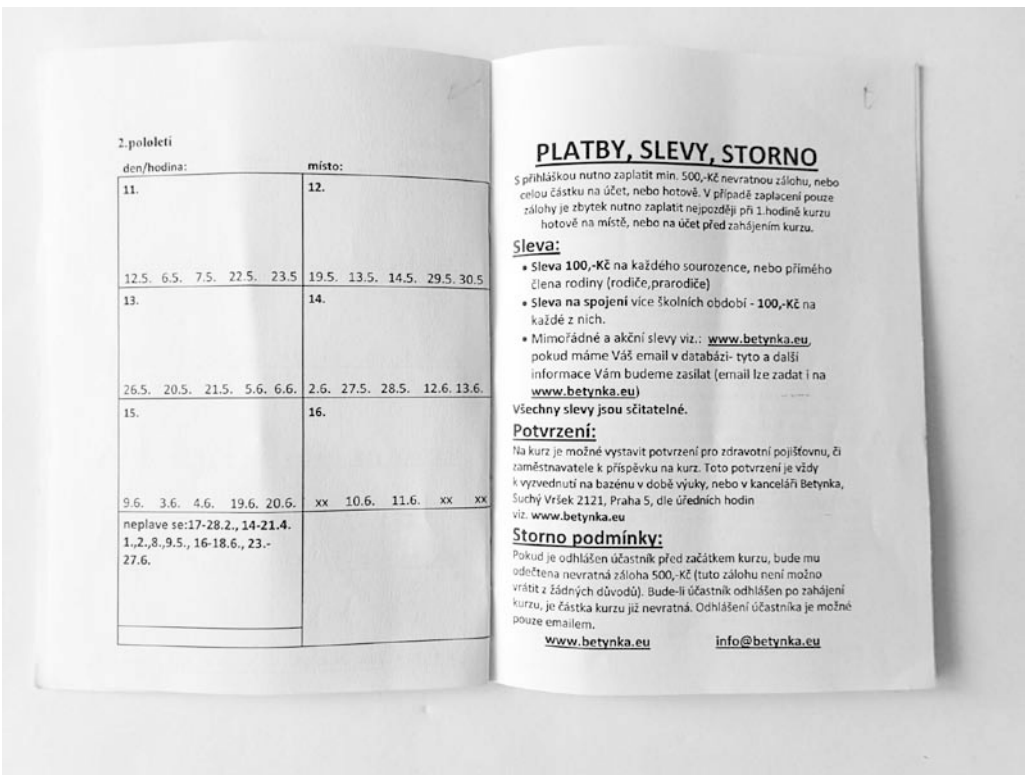 2.pololetí
den/hodina: místo:
11. 12.
12.5. 6.5. 7.5. 22.5. 23.5 19.5. 13.5. 14.5. 29.5. 30.5
13. 14.
26.5. 20.5. 21.5. 5.6. 6.6. 2.6. 27.5. 28.5. 12.6. 13.6.
15. 16.
9.6. 3.6. 4.6. 19.6. 20.6. xx 10.6. 11.6. xx xx
neplave se:17-28.2., 14-21.4.
1.,2.,8.,9.5., 16-18.6., 23.-
27.6.
PLATBY, SLEVY, STORNO
S přihláškou nutno zaplatit min. 500,-Kč nevratnou zálohu, nebo
celou částku na účet, nebo hotově. V případě zaplacení pouze
zálohy je zbytek nutno zaplatit nejpozději při 1.hodině kurzu
hotově na místě, nebo na účet před zahájením kurzu.
Sleva:
• Sleva 100,-Kč na každého sourozence, nebo přímého
člena rodiny (rodiče,prarodiče)
• Sleva na spojení více školních období - 100,-Kč na
každé z nich.
• Mimořádné a akční slevy viz.: www.betynka.eu,
pokud máme Váš email v databázi- tyto a další
informace Vám budeme zasílat (email lze zadat i na
www.betynka.eu)
Všechny slevy jsou sčitatelné.
Potvrzení:
Na kurz je možné vystavit potvrzení pro zdravotní pojišťovnu, či
zaměstnavatele k příspěvku na kurz. Toto potvrzení je vždy
k vyzvednutí na bazénu v době výuky, nebo v kanceláři Betynka,
Suchý Vršek 2121, Praha 5, dle úředních hodin
viz. www.betynka.eu
Storno podmínky:
Pokud je odhlášen účastník před začátkem kurzu, bude mu
odečtena nevratná záloha 500,-Kč (tuto zálohu není možno
vrátit z žádných důvodů). Bude-li účastník odhlášen po zahájení
kurzu, je částka kurzu již nevratná. Odhlášení účastníka je možné
pouze emailem.
www.betynka.eu info@betynka.eu